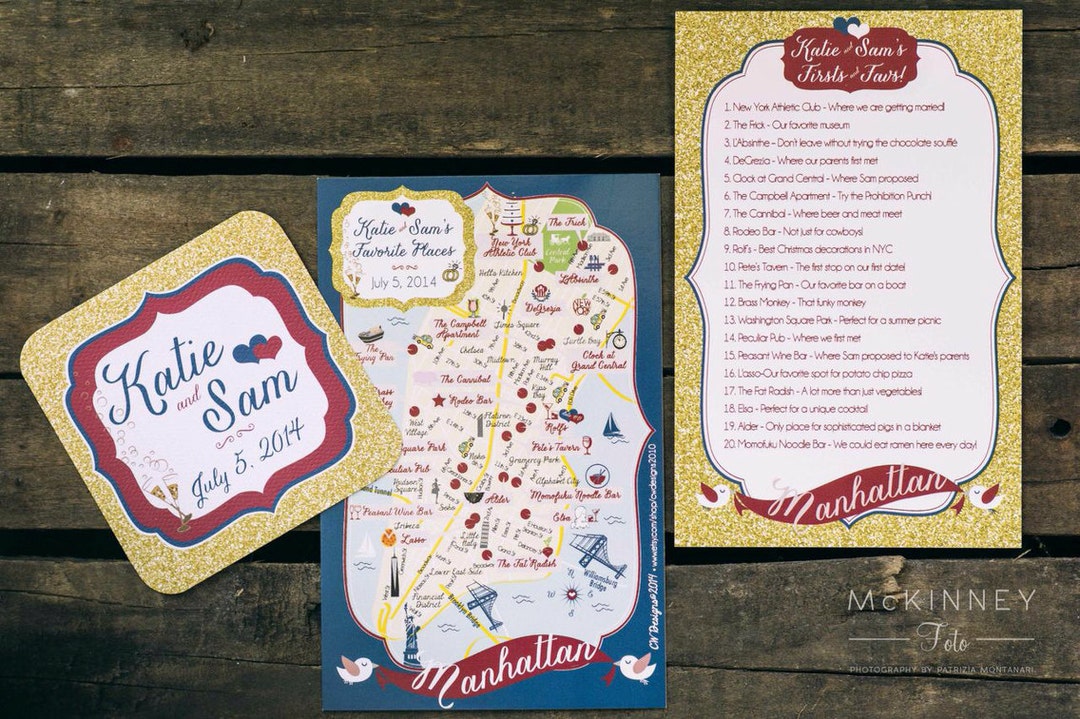 Katie
and
Sam
July 5, 2014
Katie and Sam's
Favorite Places
July 5, 2014
New York
Athletic Club
The Frick
Central
Park
L'Absinthe
Hells Kitchen
DeGrezia
Times Square
The Campbell
Apartment
NEW
YORK
Turtle Bay
The
Frying Pan
Chelsea
Midtown
Murray
Hill
Clock at
Grand Central
The Cannibal
Kips
Bay
Rodeo Bar
Flatiron
District
Rolf's
West
Village
Gramercy Park
Pete's Tavern
Square Park
Noho
Alphabet City
Pub
Hudson
Square
Alder
Momofuku Noodle Bar
Tunnel
Soho
Peasant Wine Bar
Elsa
Tribeca
Little
Italy
Lasso
The Fat Radish
Lower East Side
Williamsburg
Bridge
Financial
District
Brooklyn Bridge
N
Manhattan
CW Designs©2014 • www.etsy.com/shop/cwdesigns2010
Katie and Sam's
Firsts and Favs!
1. New York Athletic Club - Where we are getting married!
2. The Frick - Our favorite museum
3. L'Absinthe – Don't leave without trying the chocolate soufflé
4. DeGrezia - Where our parents first met
5. Clock at Grand Central - Where Sam proposed
6. The Campbell Apartment - Try the Prohibition Punch!
7. The Cannibal - Where beer and meat meet
8. Rodeo Bar - Not just for cowboys!
9. Rolf's - Best Christmas decorations in NYC
10. Pete's Tavern - The first stop on our first date!
11. The Frying Pan - Our favorite bar on a boat
12. Brass Monkey - That funky monkey
13. Washington Square Park - Perfect for a summer picnic
14. Peculiar Pub - Where we first met
15. Peasant Wine Bar - Where Sam proposed to Katie's parents
16. L'asso-Our favorite spot for potato chip pizza
17. The Fat Radish - A lot more than just vegetables!
18. Elsa - Perfect for a unique cocktail
19. Alder - Only place for sophisticated pigs in a blanket
20. Momofuku Noodle Bar - We could eat ramen here every day!
Manhattan
MCKINNEY
Foto
PHOTOGRAPHY BY PATRIZIA MONTANARI